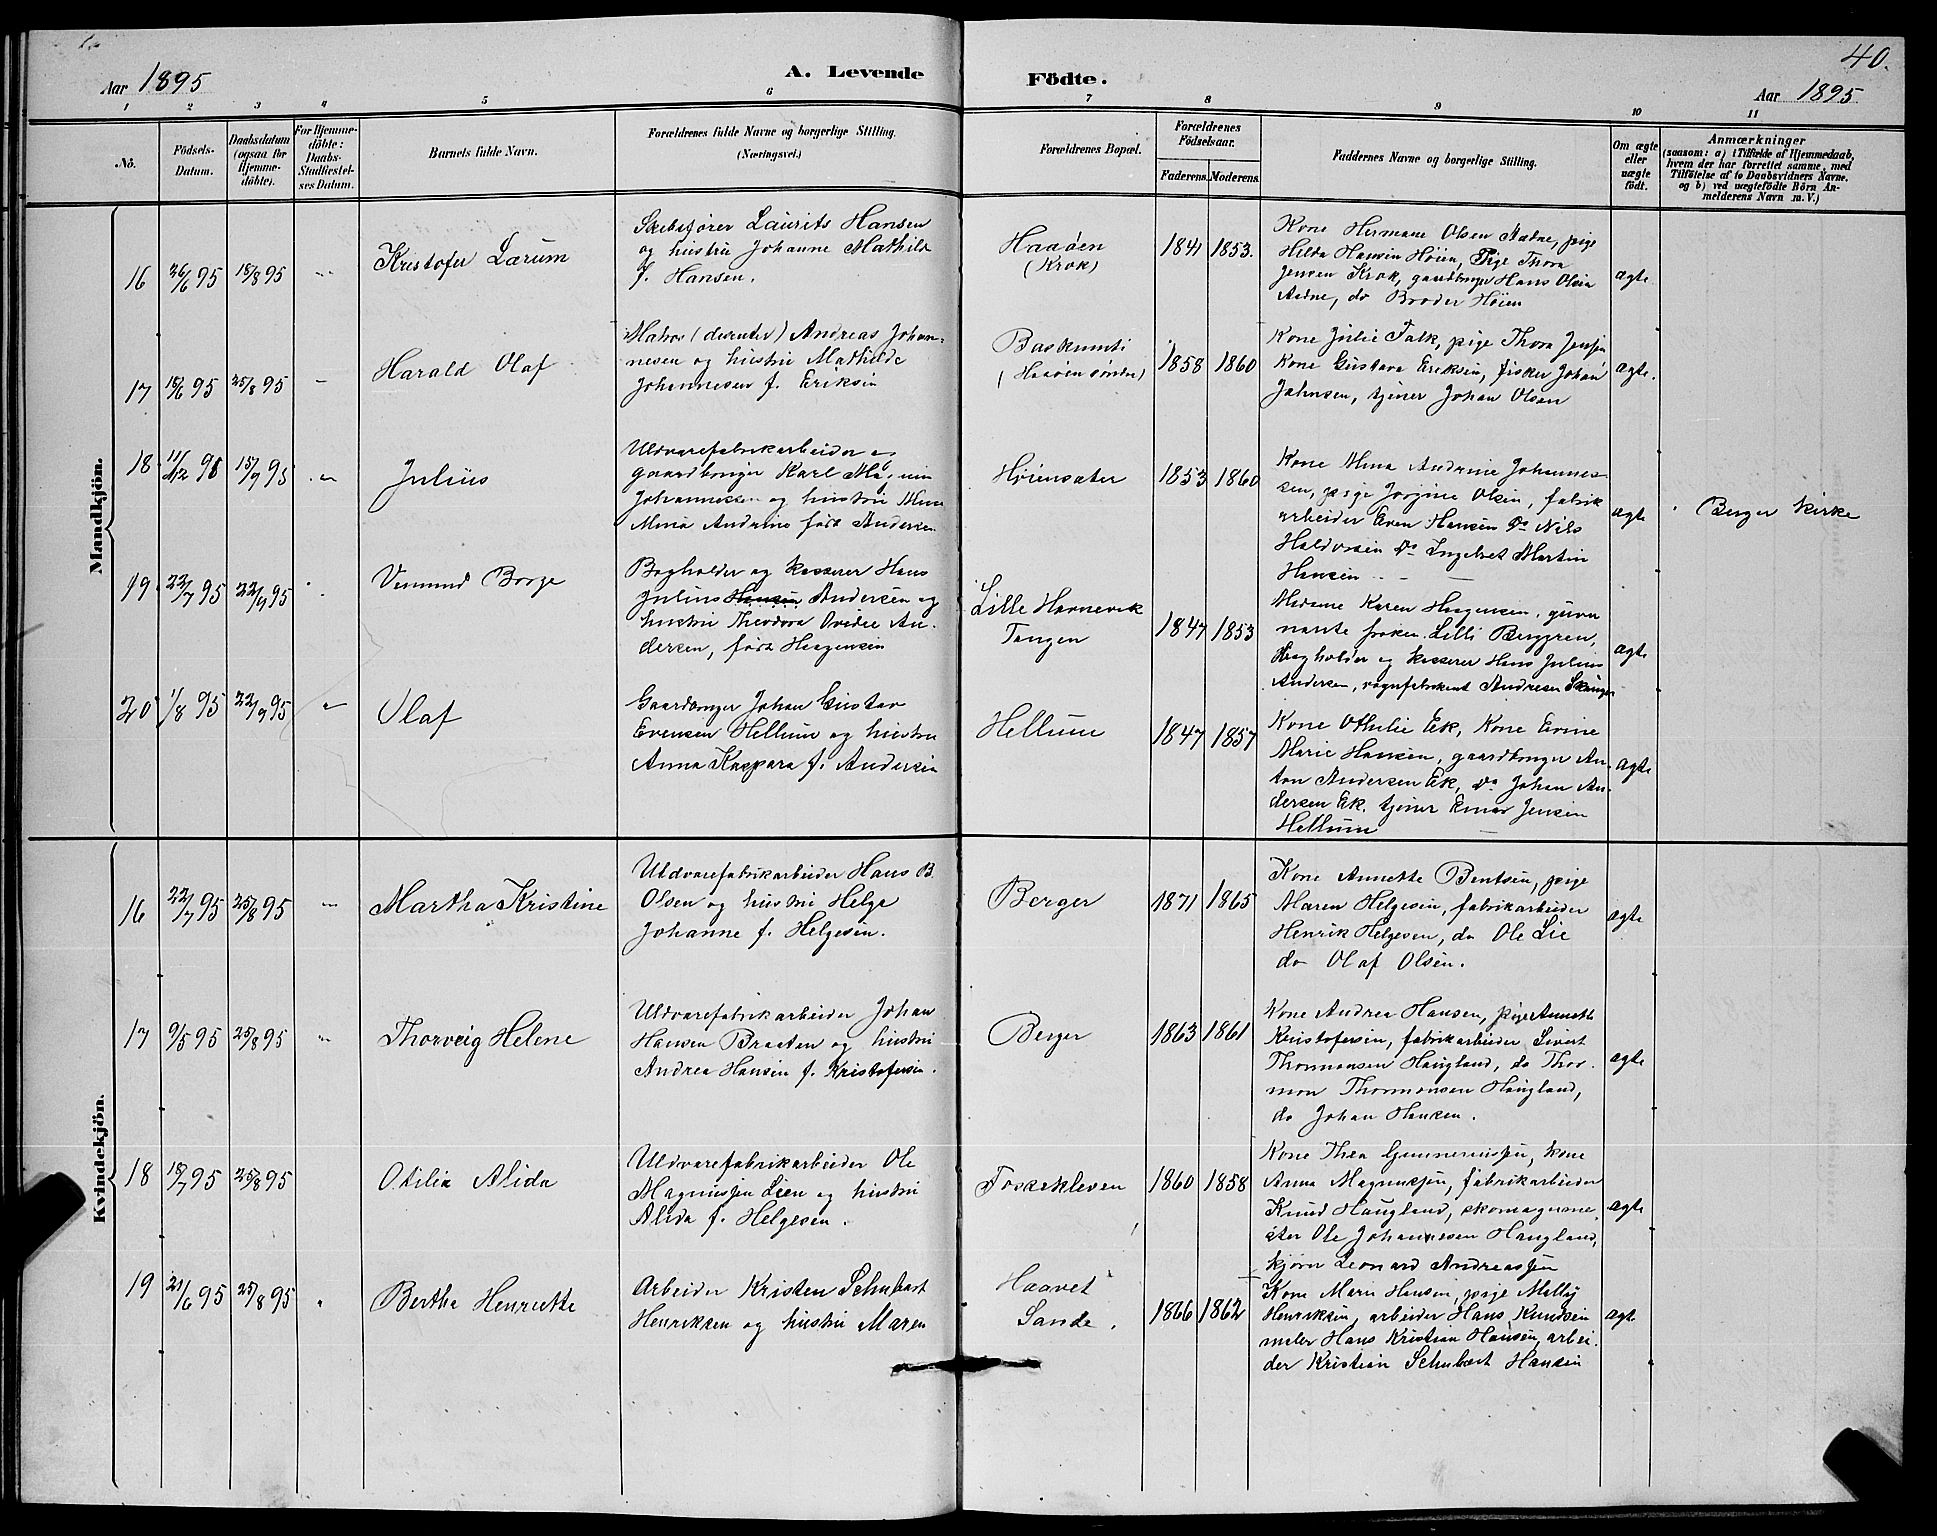 40.
Aar 1895
A. Levende
Födte.
Aar 1895
1 2 3 4 5 6 7 8 9 10 11
No.
Födsels-
Datum.
Daabsdatum
(ogsaa for
Hjemme-
döbte).
For Hjemme-
döbte:
Daabs-
Stadfæstel-
ses Datum.
Barnets fulde Navn.
Forældrenes fulde Navne og borgerlige Stilling.
(Næringsvei.)
Forældrenes Bopæl.
Forældrenes
Födselsaar.
Faderens. Moderens.
Faddernes Navne og borgerlige Stilling.
Om ægte
eller
uægte
födt.
Anmærkninger
(saasom: a) i Tilfælde af Hjemmedaab,
hvem der har forrettet samme, med
Tilföielse af to Daabsvidners Navne.
og b) ved uægtefödte Börn An-
melderens Navn m. V.)
Mandkjön.
16 26/6 95 18/8 95
Kristofer Lærum
Skibsfører Laurits Hansen
og hustru Johanne Mathilde
f. Hansen.
Haaøen
(Krok)
1841 1853.
Kone Hermane Olsen Aadne, pige
Hilda Hansen Høien, Pige Thora
Jensen Krok, gaardbruger Hans Olsen
Aadne, do Broder Høien
ægte.
17 18/6 95 25/8 95
Harald Olaf
Matros (deserter) Andreas Johan-
nesen og hustru Mathilde
Johannesen f. Eriksen
(Haaøen søndre)
1858 1860
Kone Julie Falk, pige Thora Jensen
Kone Gustava Eriksen, fisker Johan
Jahnsen, tjener Johan Olsen
ægte.
18 15/9 95
Julius
Uldvarefabrikarbeider og
gaardbruger Karl Magnus
Johannessen og hustru
Mina Andrine født Andersen
Høiensæter
1853 1860
Kone Mina Andrine Johannes-
sen, pige Jorgine Olsen, fabrik
arbeider Even Hansen Do Nils
Haldorsen Do Ingebret Martin
Hansen
ægte
Berger Kirke
19 22/7 95 22/9 95
Vemund Borge
Bogholder og kasserer Hans
Julius Hansen Andersen og
hustru Theodora Ovidie An-
dersen, født Haagensen
Lille Havnevik
Tangen
1847 1853
Madame Karen Haagensen, guver
nante frøken Lilli Berggren,
Bogholder og kasserer Hans Julius
Andersen, vognfabrikant Andresen
ægte
20 1/8 95 22/9 95
Olaf
Gaardbruger Johan Gustav
Evensen Hellum og hustru
Anna Kaspara f. Andersen
Hellum
1847 1857
Kone Othilie Ek, Kone Evine
Marie Hansen, gaardbruger An-
ton Andersen Ek, Do Johan An-
dersen Ek. tjener Einar Jensen
Hellum
ægte
Kvindekjön.
16 22/7 95 25/8 95
Martha Kristine
Uldvarefabrikarbeider Hans B.
Olsen og hustru Helga
Johanne f. Helgesen.
Berger
1871 1865
Kone Annette Bentsen, pige
Maren Helgesen, fabrikarbeider
Henrik Helgesen, do Ole Lie
do Olaf Olsen.
ægte
17 9/5 95 25/8 95
Thorveig Helene
Uldvarefabrikarbeider Johan
Hansen Braaten og hustru
Andrea Hansen f. Kristofersen.
Berger
1863 1861
Kone Andrea Hansen, pige Annette
Kristofersen, fabrikarbeider Sivert
Thormonsen Haugland, do Thor-
mon Thormonsen Haugland,
do Johan Hansen.
ægte
18 18/7 95 25/8 95
Otilia Alida
Uldvarefabrikarbeider Ole
Magnussen Lien og hustru
Alida f. Helgesen.
Fossekleven
1860 1858
Kone Thea Gunneriussen, kone
Anna Magnussen, fabrikarbeider
Knud Haugland, skomagerme-
ster Ole Johannesen Haugland,
Leonard Andreassen
ægte
19 21/6 95 25/8 95
Bertha Henriette
Arbeider Kristen Schubart
Henriksen og hustru Maren
Haavet
Sande.
1866 1862
Kone Marie Hansen, pige Mally
Henriksen, arbeider Hans Knudsen
maler Hans Kristian Hansen, arbei-
der Kristian Schubart Hansen
ægte